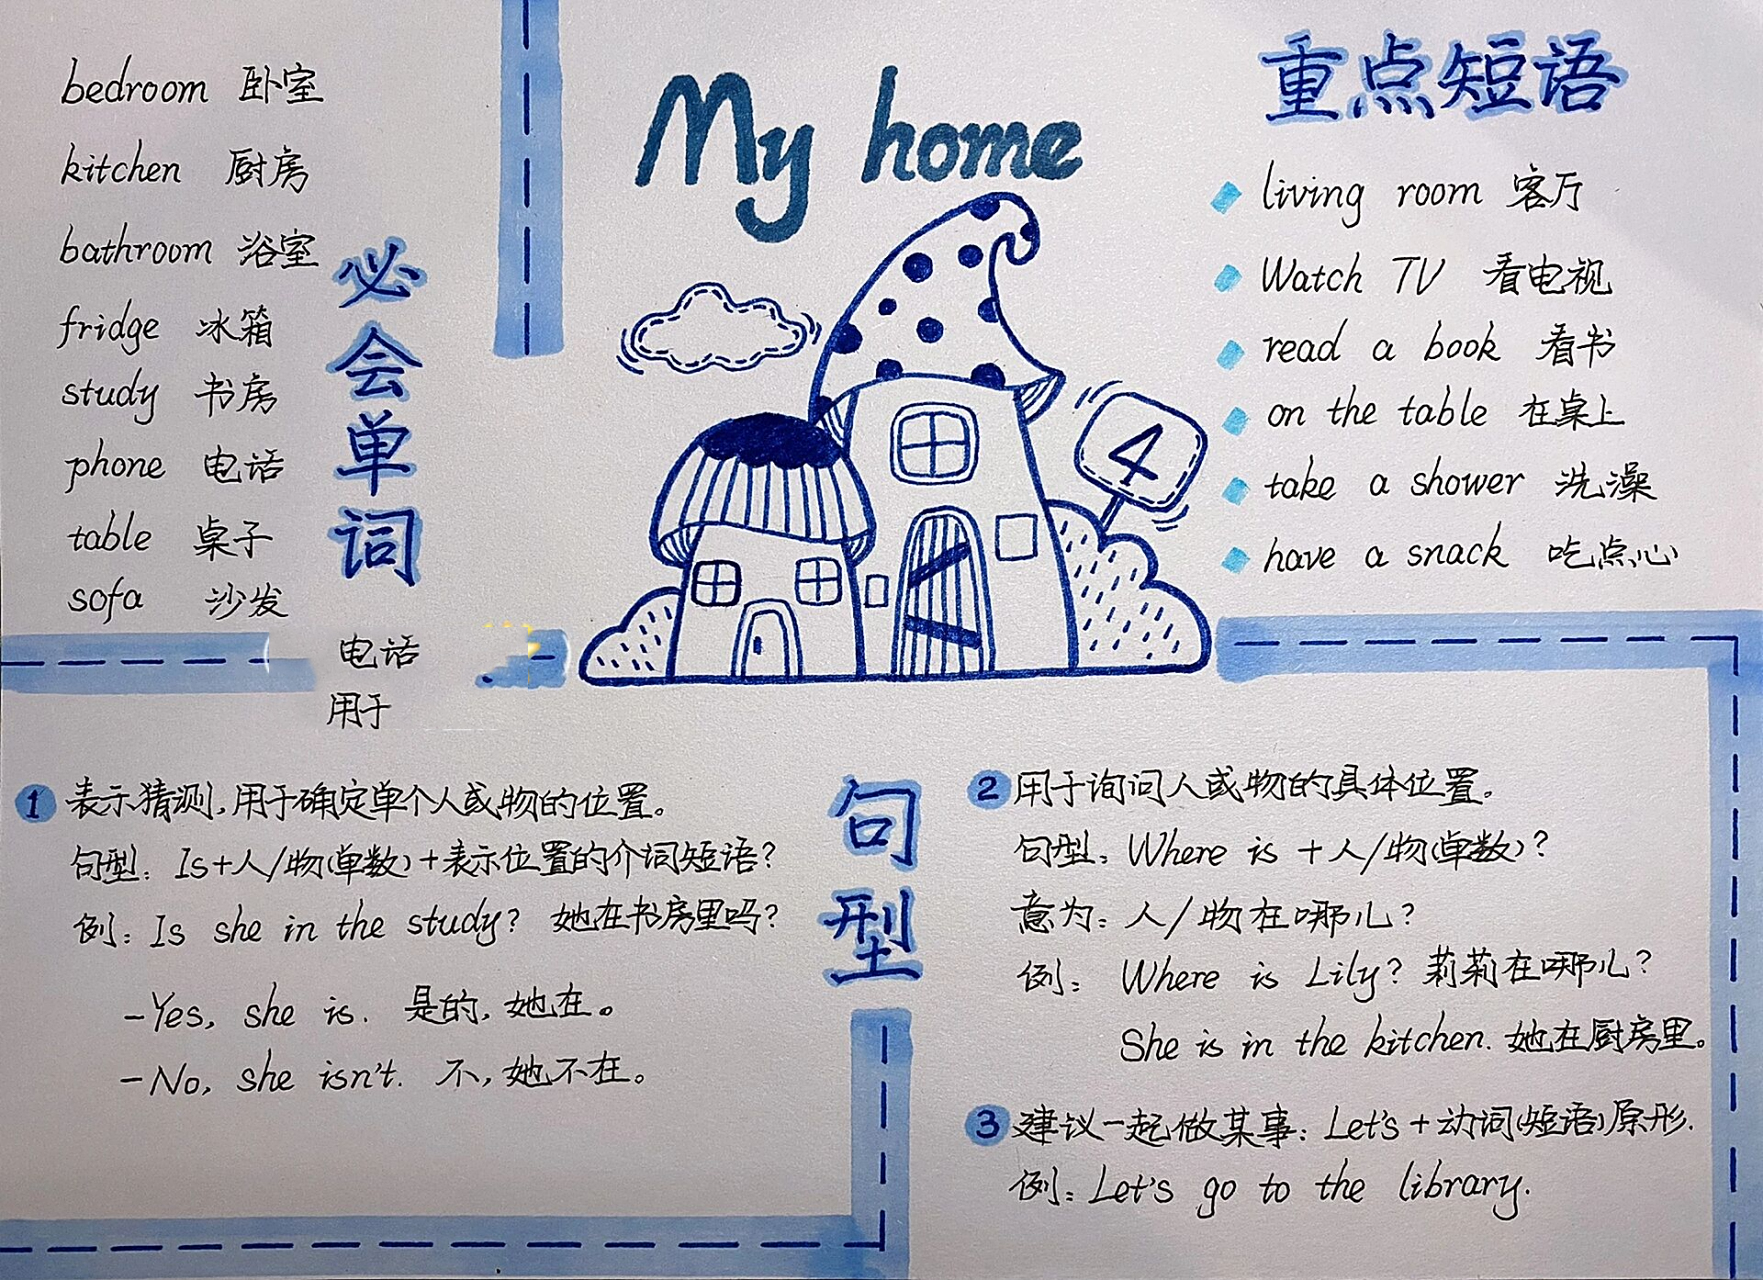 My home
4
必会单词
bedroom 卧室
kitchen 厨房
bathroom 浴室
fridge 冰箱
study 书房
phone 电话
table 桌子
sofa 沙发
电话
用于
重点短语
living room 客厅
Watch TV 看电视
read a book 看书
on the table 在桌上
take a shower 洗澡
have a snack 吃点心
句型
1 表示猜测,用于确定单个人或物的位置。
句型: Is+人/物(单数)+表示位置的介词短语?
例: Is she in the study? 她在书房里吗?
-Yes, she is. 是的,她在。
-No, she isn't. 不,她不在。
2 用于询问人或物的具体位置。
句型: Where is +人/物(单数)?
意为: 人/物在哪儿?
例: Where is Lily? 莉莉在哪儿?
She is in the kitchen. 她在厨房里。
3 建议一起做某事: Let's+动词(短语)原形.
例: Let's go to the library.